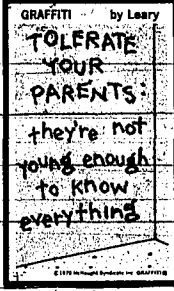 GRAFFITI by Leary
TOLERATE
YOUR
PARENTS:
they're not
young enough
to know
everything
McNaught Syndicate Inc GRAFFITI®